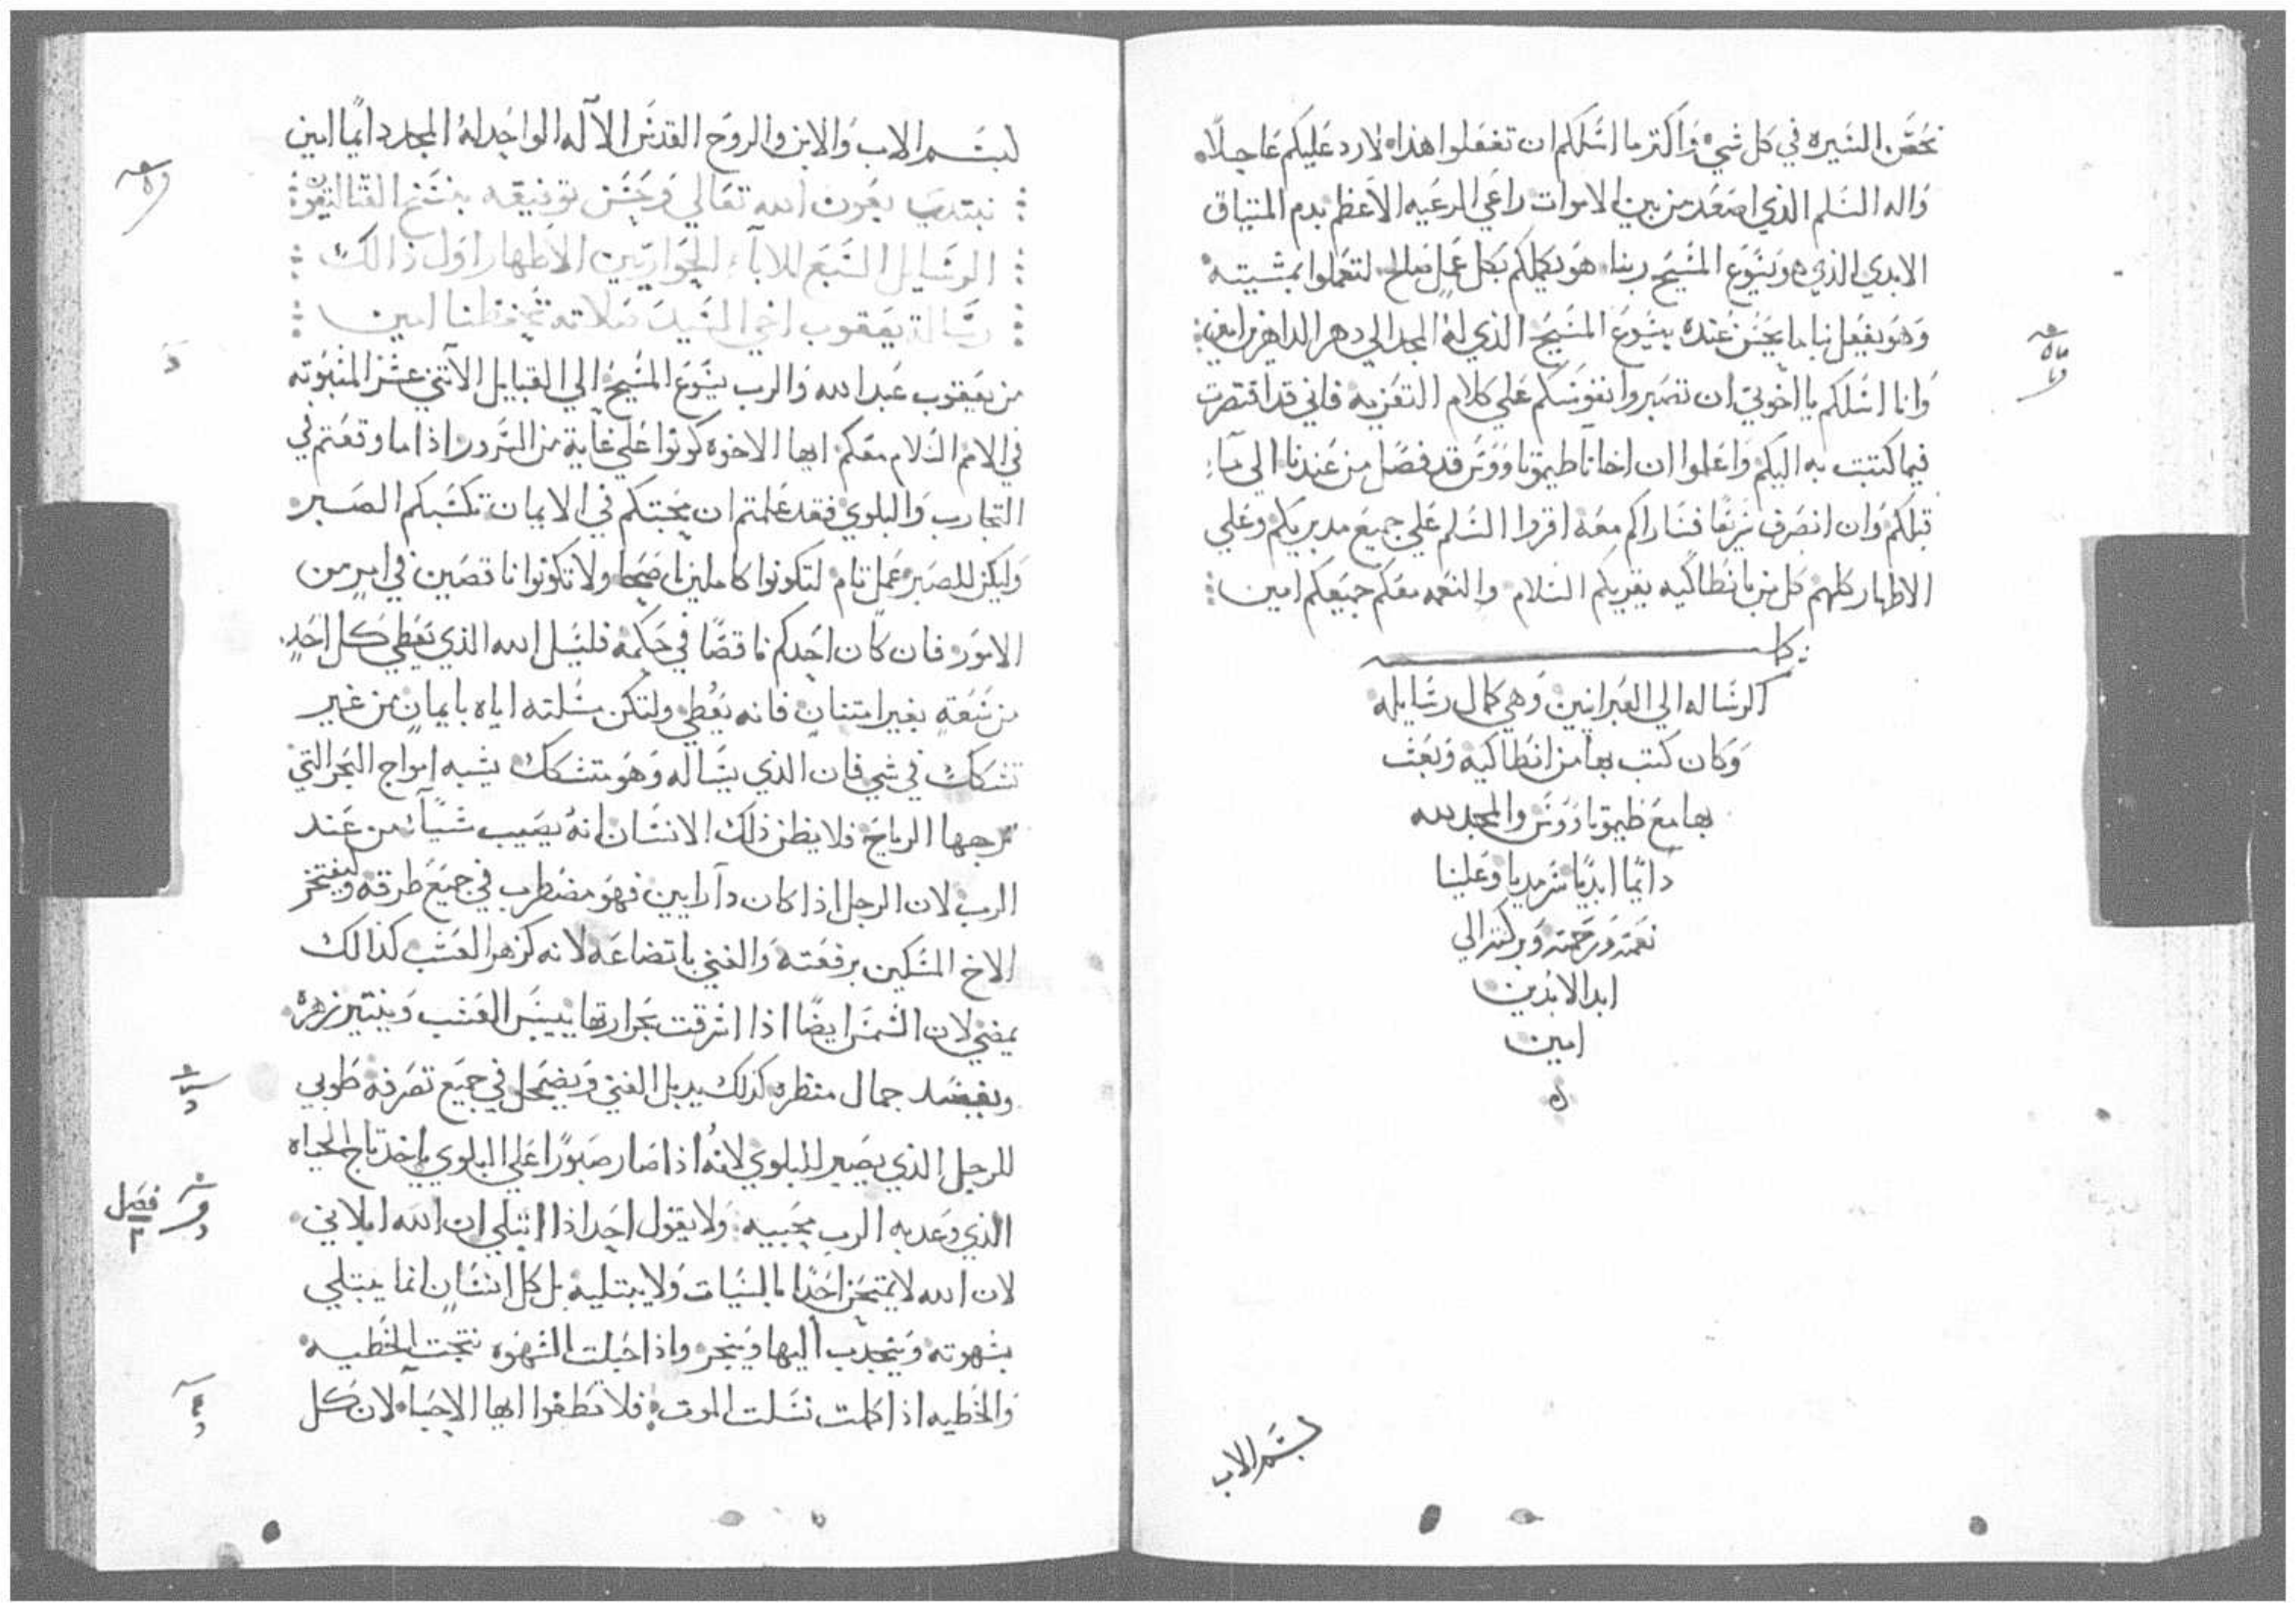 نحسن السيره في كل شي واكتر ما اسلكم ان تفعلوا هذا لارد عليكم عاجلاً
واله السلم الذي اصعد من بين الاموات راعي الرعيه الاعظم بدم الميتاق
الابدي الذي هو يسوع المسيح ربنا هو يكملكم بكل عمل صالح لتعملوا بمشيته
وهو يفعل بنا ما يحسن عنده بيسوع المسيح الذي له المجد الي دهر الداهرين امين
وانا اسلكم يا اخوتي ان تصبروا نفوسكم علي كلام التعزيه فاني قد اقتصرت
فيما كتبت به اليكم واعلموا ان اخانا طيموتاووس قد فصل من عندنا الي ما
قبلكم وان انصرف سريعًا فساراكم معه اقروا السلم علي جميع مدبريكم وعلي
الاطهار كلهم كل من بانطاكيه يقريكم السلام والنعمه معكم جميعكم امين
كملت
الرساله الي العبرانيين وهي كمال رسايله
وكان كتب بها من انطاكيه وبعث
بها مع طيموتاووس والمجد لله
دايمًا ابديًا سرمديا وعلينا
نعمته ورحمته وبركته الي
ابد الابدين
امين
بسم الاب
بسم الاب والابن والروح القدس الآله الواحد له المجد دايمًا امين
نبتدي بعون الله تعالي وحسن توفيقه بنسخ القتاليقون
الرسايل السبع للابآء الحواريين الاطهار اول ذالك
رسالة يعقوب اخي السيد صلاته تحفظنا امين
من يعقوب عبد الله والرب يسوع المسيح الي القبايل الاثني عشر المنبوته
في الامم السلام معكم ايها الاخوه كونوا علي غاية من السرور اذا ما وقعتم في
التجارب والبلوي فقد علمتم ان محنتكم في الايمان تكسبكم الصبر
وليكن للصبر عمل تام لتكونوا كاملين اصحا ولا تكونوا ناقصين في امر من
الامور فان كان احدكم ناقصًا في حكمة فليسل الله الذي يعطي كل احدٍ
من سعةٍ بغير امتنان فانه يعطي ولتكن مسلته اياه بايمان من غير
تشكك في شي فان الذي يساله وهو متشكك يشبه امواج البحر التي
ترجها الرياح فلا يظن ذلك الانسان انه يصيب شيًا من عند
الرب لان الرجل اذا كان ذا رايين فهو مضطرب في جميع طرقه وليفتخر
الاخ المسكين برفعته والغني باتضاعه لانه كزهر العشب كذالك
يمضي لان الشمس ايضًا اذا اشرقت بحرارتها ييبس العشب وينتثر زهره
ويفسد جمال منظره كذلك يدبل الغني ويضمحل في جميع تصرفه طوبي
للرجل الذي يصبر للبلوي لانه اذا صار صبورًا علي البلوي ياخذ تاج الحياه
الذي وعد به الرب محبيه ولا يقول احد اذا ابتلي ان الله ابلاني
لان الله لا يمتحن احدًا بالسيات ولا يبتليه بل كل انسان انما يبتلي
بشهوته وينجدب اليها وينجر واذا حبلت الشهوه نتجت الخطيه
والخطيه اذا كملت نسلت الموت فلا تطغوا ايها الاحبآ لان كل
فصل
٢